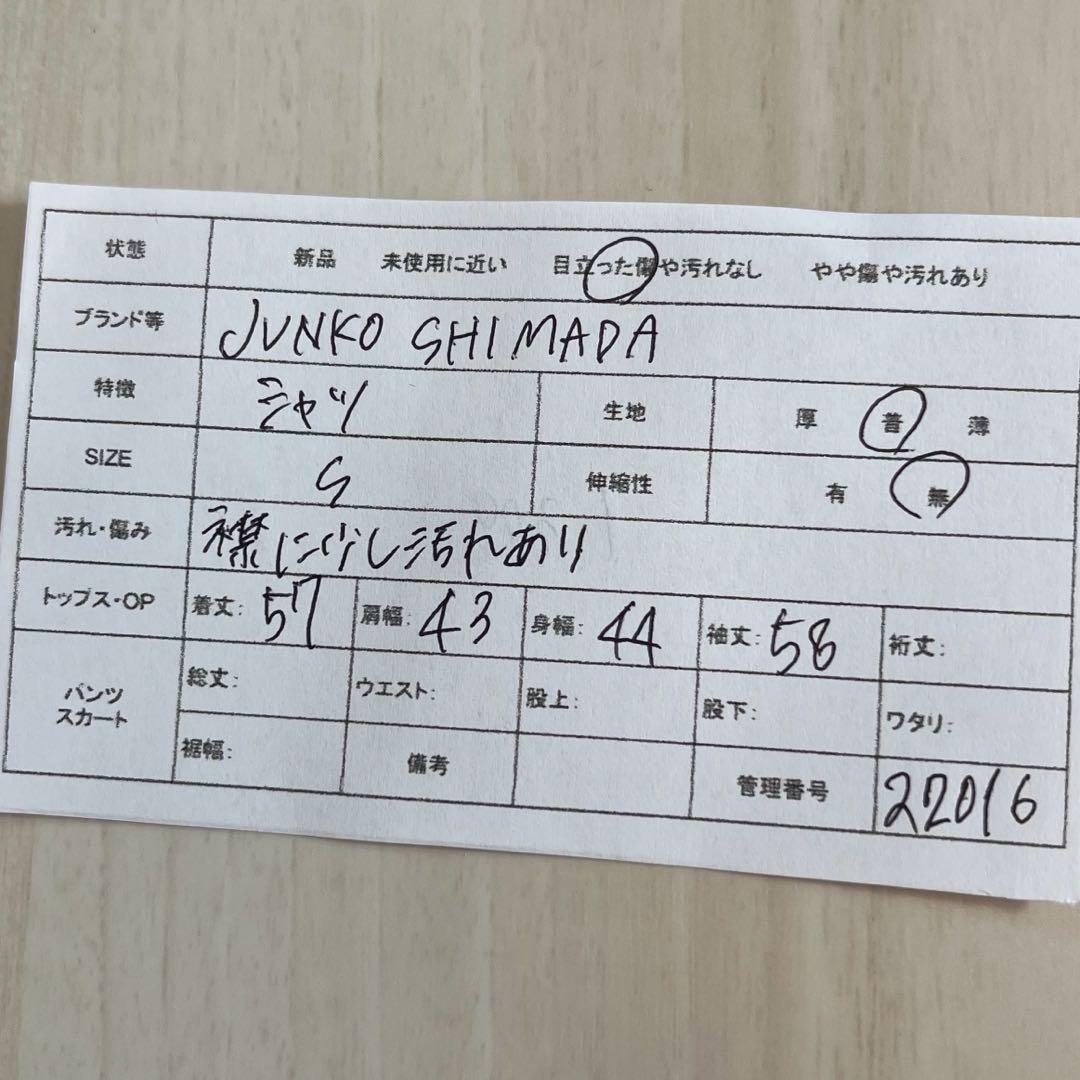 状態 新品 未使用に近い 目立った傷や汚れなし やや傷や汚れあり
ブランド等 JUNKO SHIMADA
特徴 シャツ 生地 厚 普 薄
SIZE S 伸縮性 有 無
汚れ・傷み 襟に少し汚れあり
トップス・OP 着丈: 57 肩幅: 43 身幅: 44 袖丈: 58 裄丈:
パンツ
スカート
総丈: ウエスト: 股上: 股下: ワタリ:
裾幅: 備考 管理番号 22016